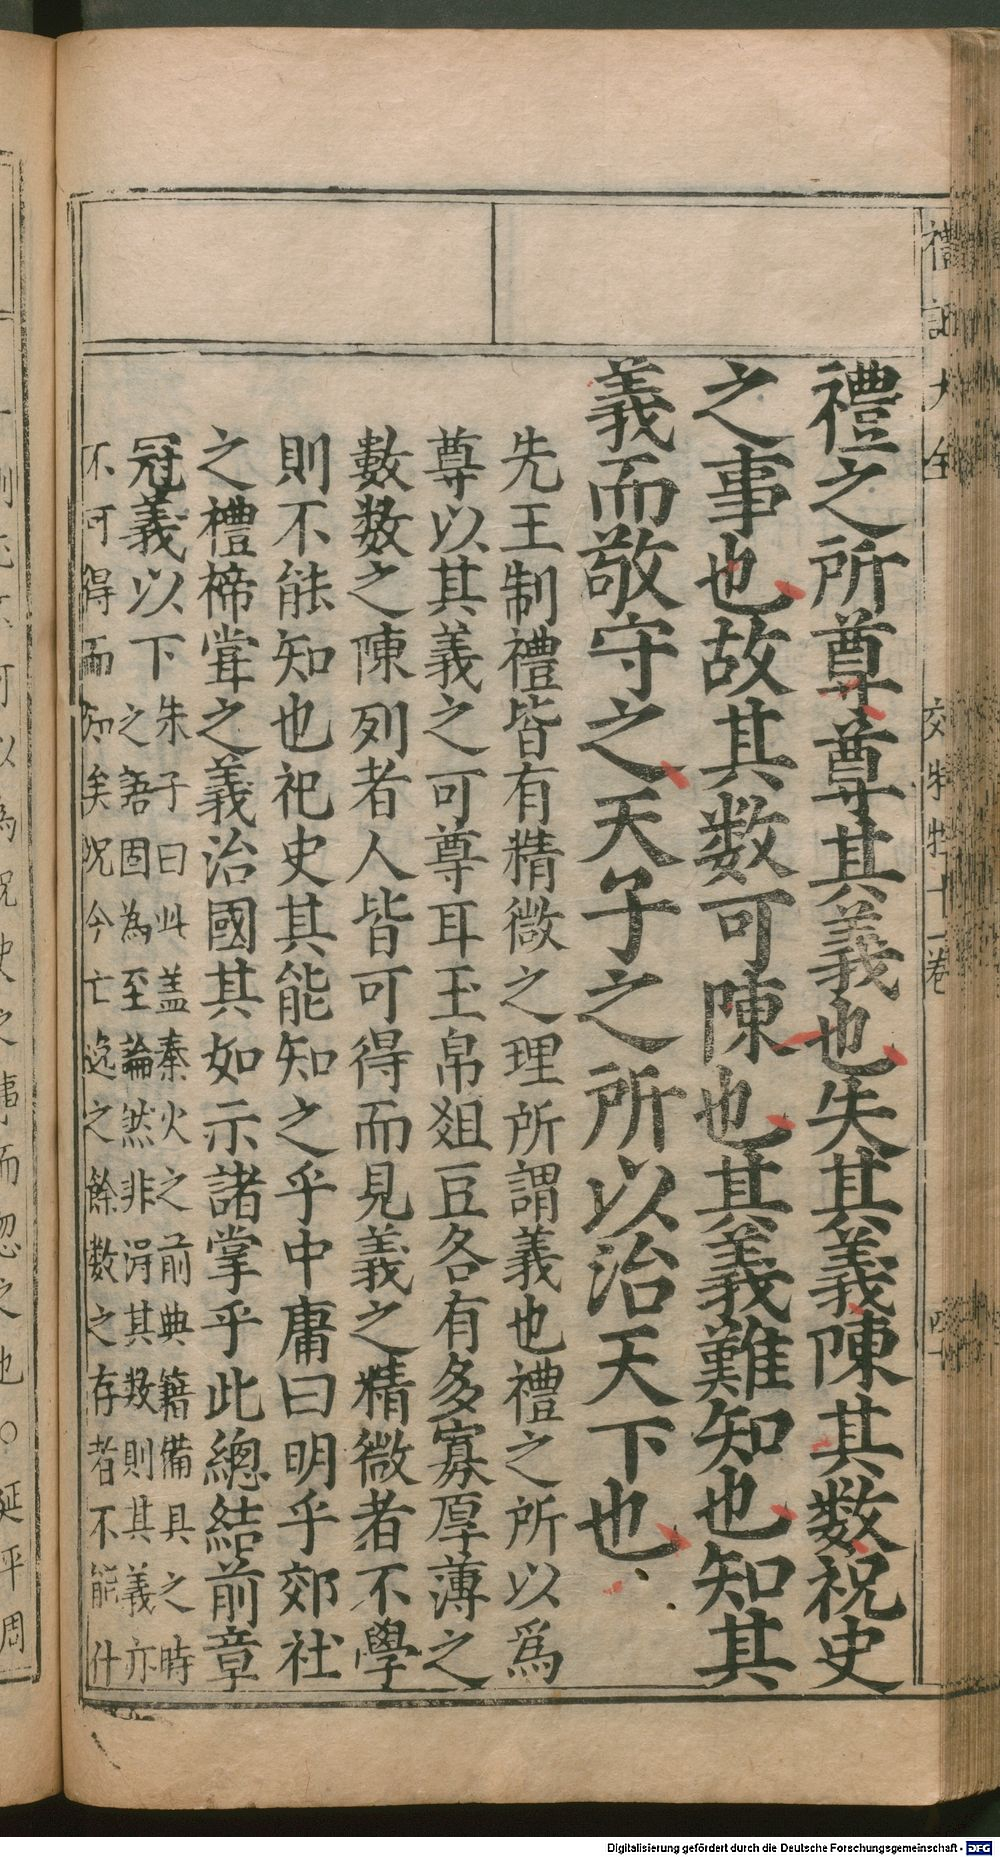 禮記大全
禮之所尊尊其義也失其義陳其数祝史
之事也故其数可陳也其義難知也知其
義而敬守之天子之所以治天下也
先王制禮皆有精微之理所謂義也禮之所以爲
尊以其義之可尊耳玉帛俎豆各有多寡厚薄之
數数之陳列者人皆可得而見義之精微者不學
則不能知也祀史其能知之乎中庸曰明乎郊社
之禮禘甞之義治國其如示諸掌乎此總結前章
冠義以下
朱子曰此盖秦火之前典籍備具之時
之語固為至論然非得其数則其義亦
不可得而知矣况今亡逸之餘数之存者不能什
Digitalisierung gefördert durch die Deutsche Forschungsgemeinschaft - DFG